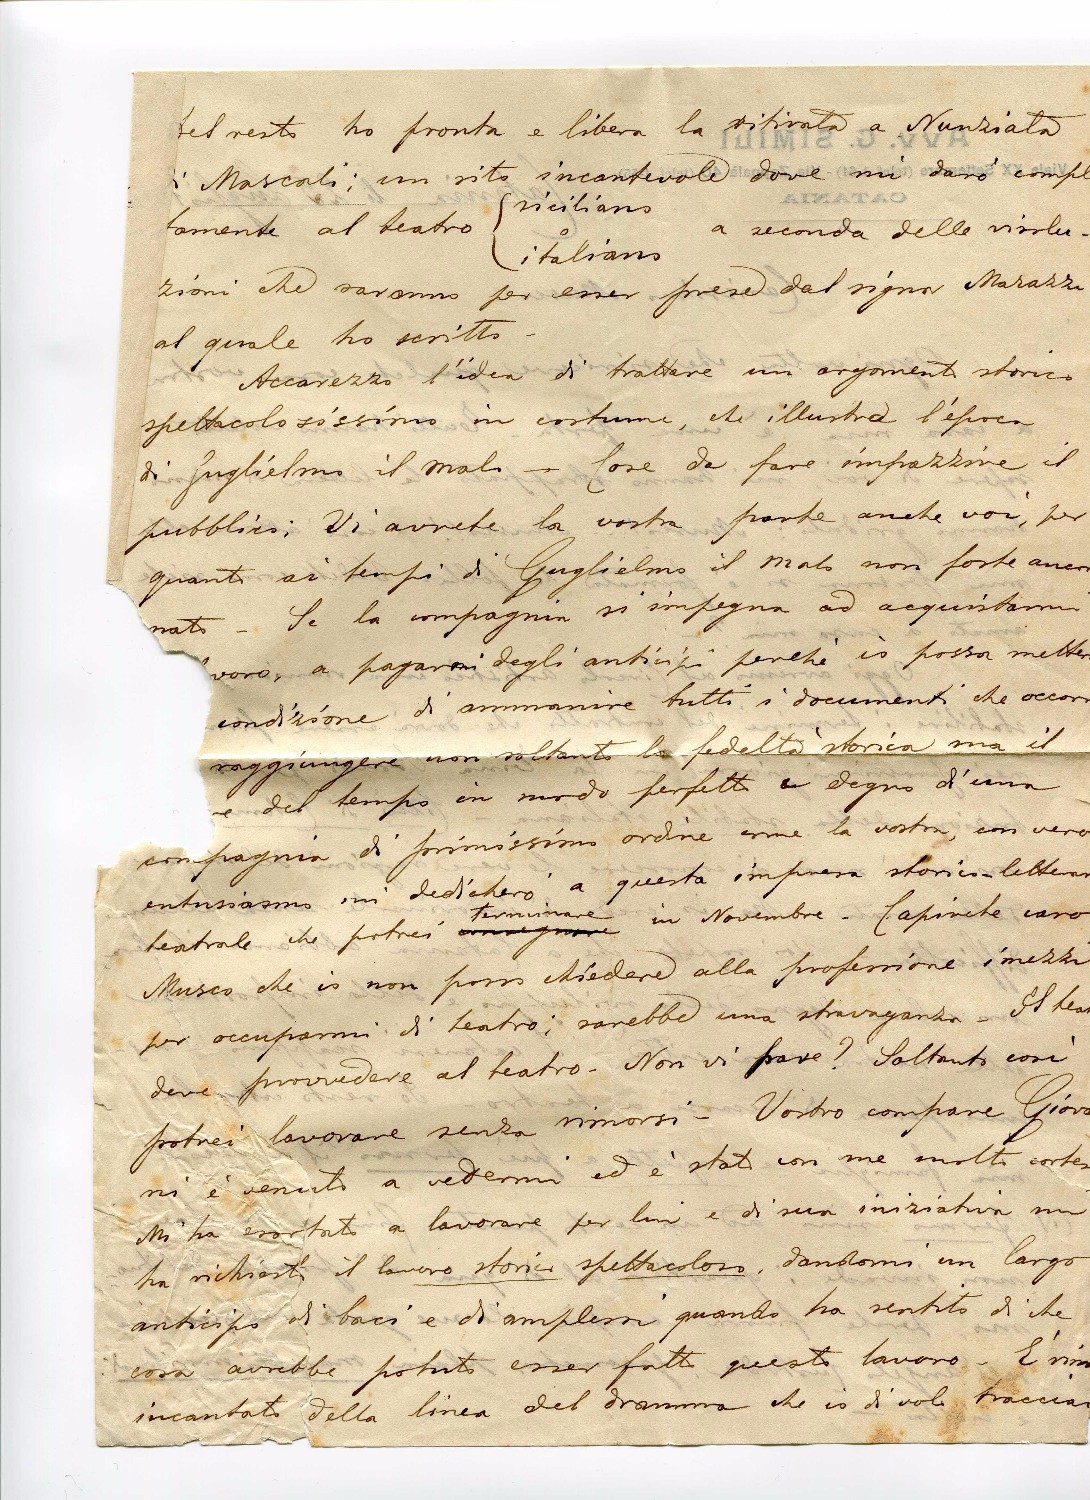 del resto ho pronta e libera la ritirata a Nunziata
di Mascali; un sito incantevole dove mi darò comple
tamente al teatro { siciliano
o
italiano
a seconda delle risolu-
zioni che saranno per esser prese dal signor Marazzi
al quale ho scritto -
Accarezzo l'idea di trattare un argomento storico
spettacolosissimo in costume, che illustra l'epoca
di Guglielmo il malo - Cose da fare impazzire il
pubblico; Vi avrete la vostra parte anche voi, per
quanto ai tempi di Guglielmo il malo non foste ancora
nato - Se la compagnia si impegna ad acquistarmi
voro, a pagarmi degli anticipi perchè io possa metter
condizione di ammanire tutti i documenti che occorr
raggiungere non soltanto la fedeltà storica ma il
e del tempo in modo perfetto e degno d'una
compagnia di primissimo ordine come la vostra, con vero
entusiasmo mi dedicherò a questa impresa storico-letterar
teatrale che potrei consegnare terminare in Novembre - Capirete caro
Musco che io non posso chiedere alla professione i mezzi
per occuparmi di teatro; sarebbe una stravaganza - Il teat
deve provvedere al teatro - Non vi pare? Soltanto così
potrei lavorare senza rimorsi - Vostro compare Giova
ni è venuto a vedermi ed è stato con me molto cortes
Mi ha esortato a lavorare per lui e di sua iniziativa mi
ha richiesto il lavoro storico spettacoloso, dandomi un largo
anticipo di baci e di amplessi quando ha sentito di che
cosa avrebbe potuto esser fatto questo lavoro - È rim
incantato della linea del dramma che io di volo tracciai
AVV. G. SIMILI
CATANIA